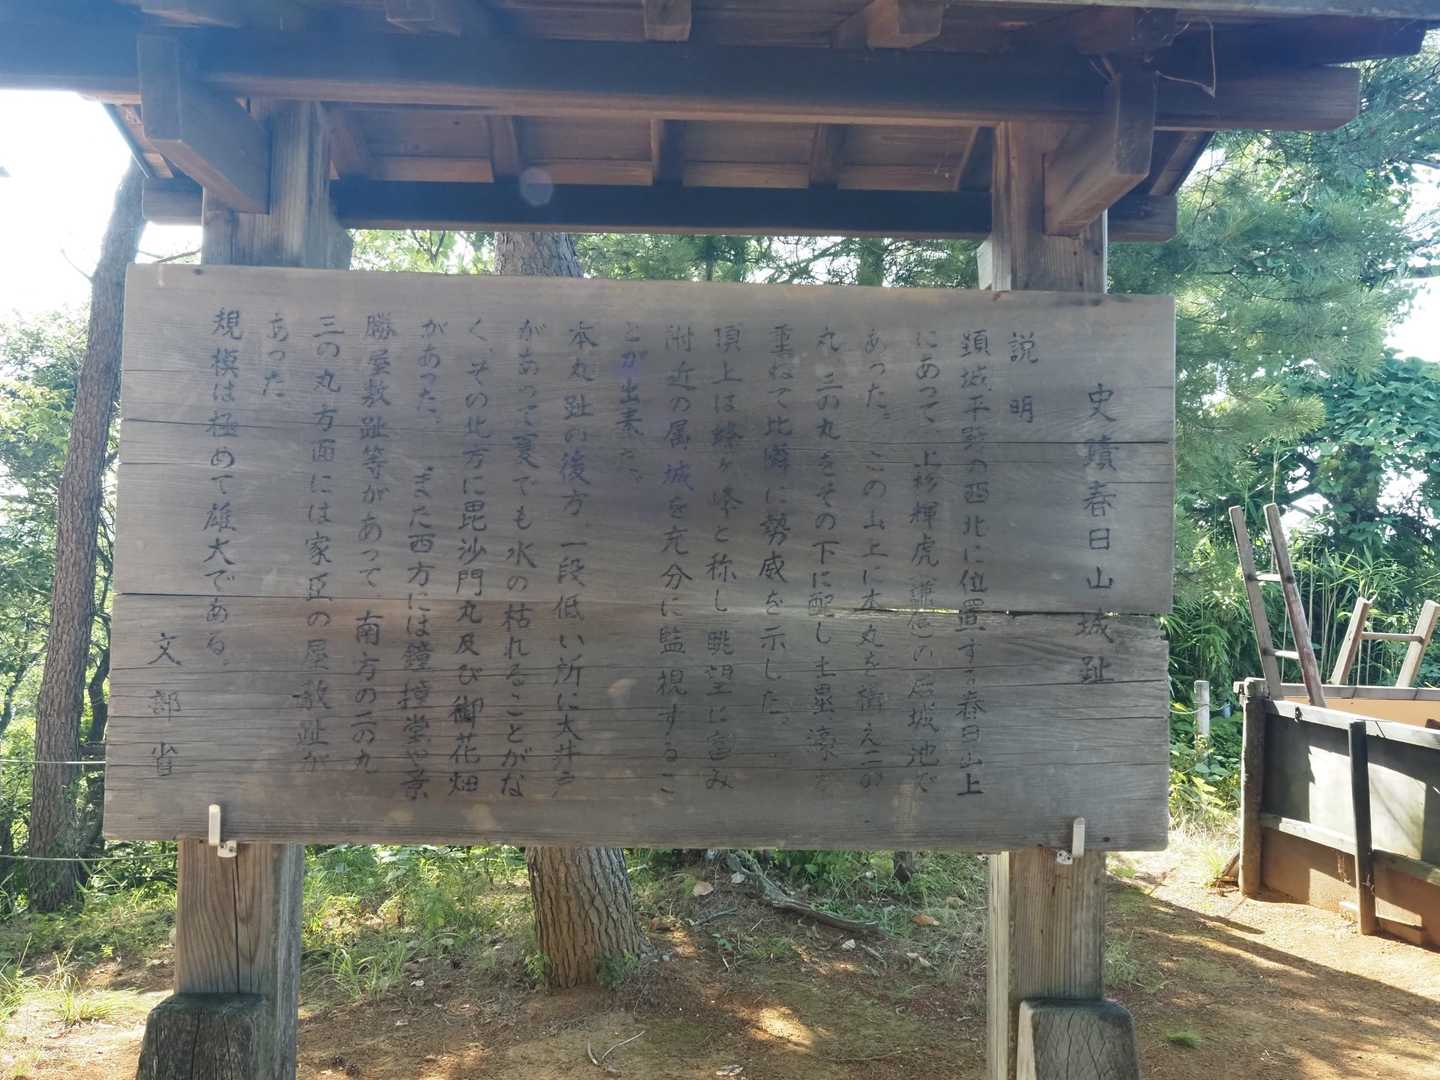 史蹟春日山城趾
説明
頚城平野の西北に位置する春日山上
にあって上杉輝虎(謙信)の居城池で
あった。この山上に本丸を構え二の
丸、三の丸をその下に配し土塁、濠を
重ねて比隣に勢威を示した。
頂上は蜂ヶ峯と称し眺望に富み
附近の属城を充分に監視するこ
とが出来た。
本丸趾の後方、一段低い所に大井戸
があって夏でも水の枯れることがな
く その北方に毘沙門丸及び御花畑
があった。 また西方には鐘撞堂や景
勝屋敷趾等があって、南方の二の丸
三の丸方面には家臣の屋敷趾が
あった
規模は極めて雄大である。
文部省